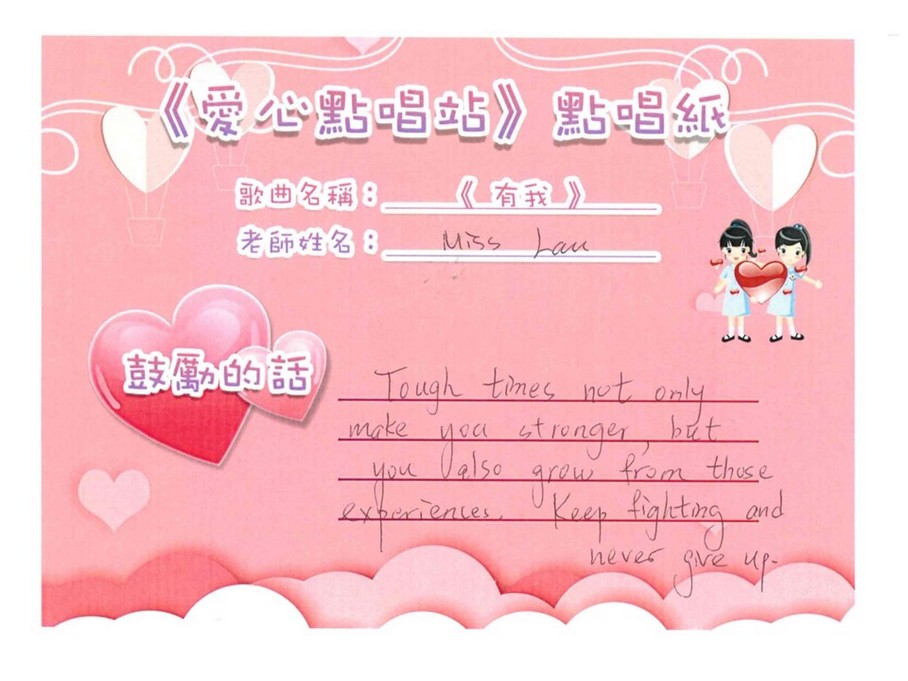 《愛心點唱站》點唱紙
歌曲名稱：《有我》
老師姓名：Miss Lau
鼓勵的話
Tough times not only
make you stronger, but
you also grow from those
experiences. Keep fighting and
never give up.